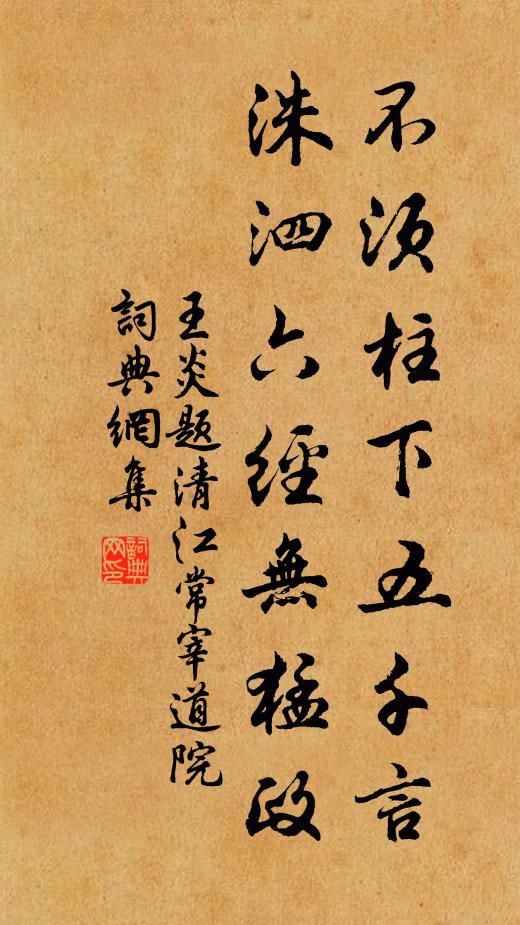 不須柱下五千言
洙泗六經無猛政
王炎题清江常宰道院
詞典網集
詞典网印